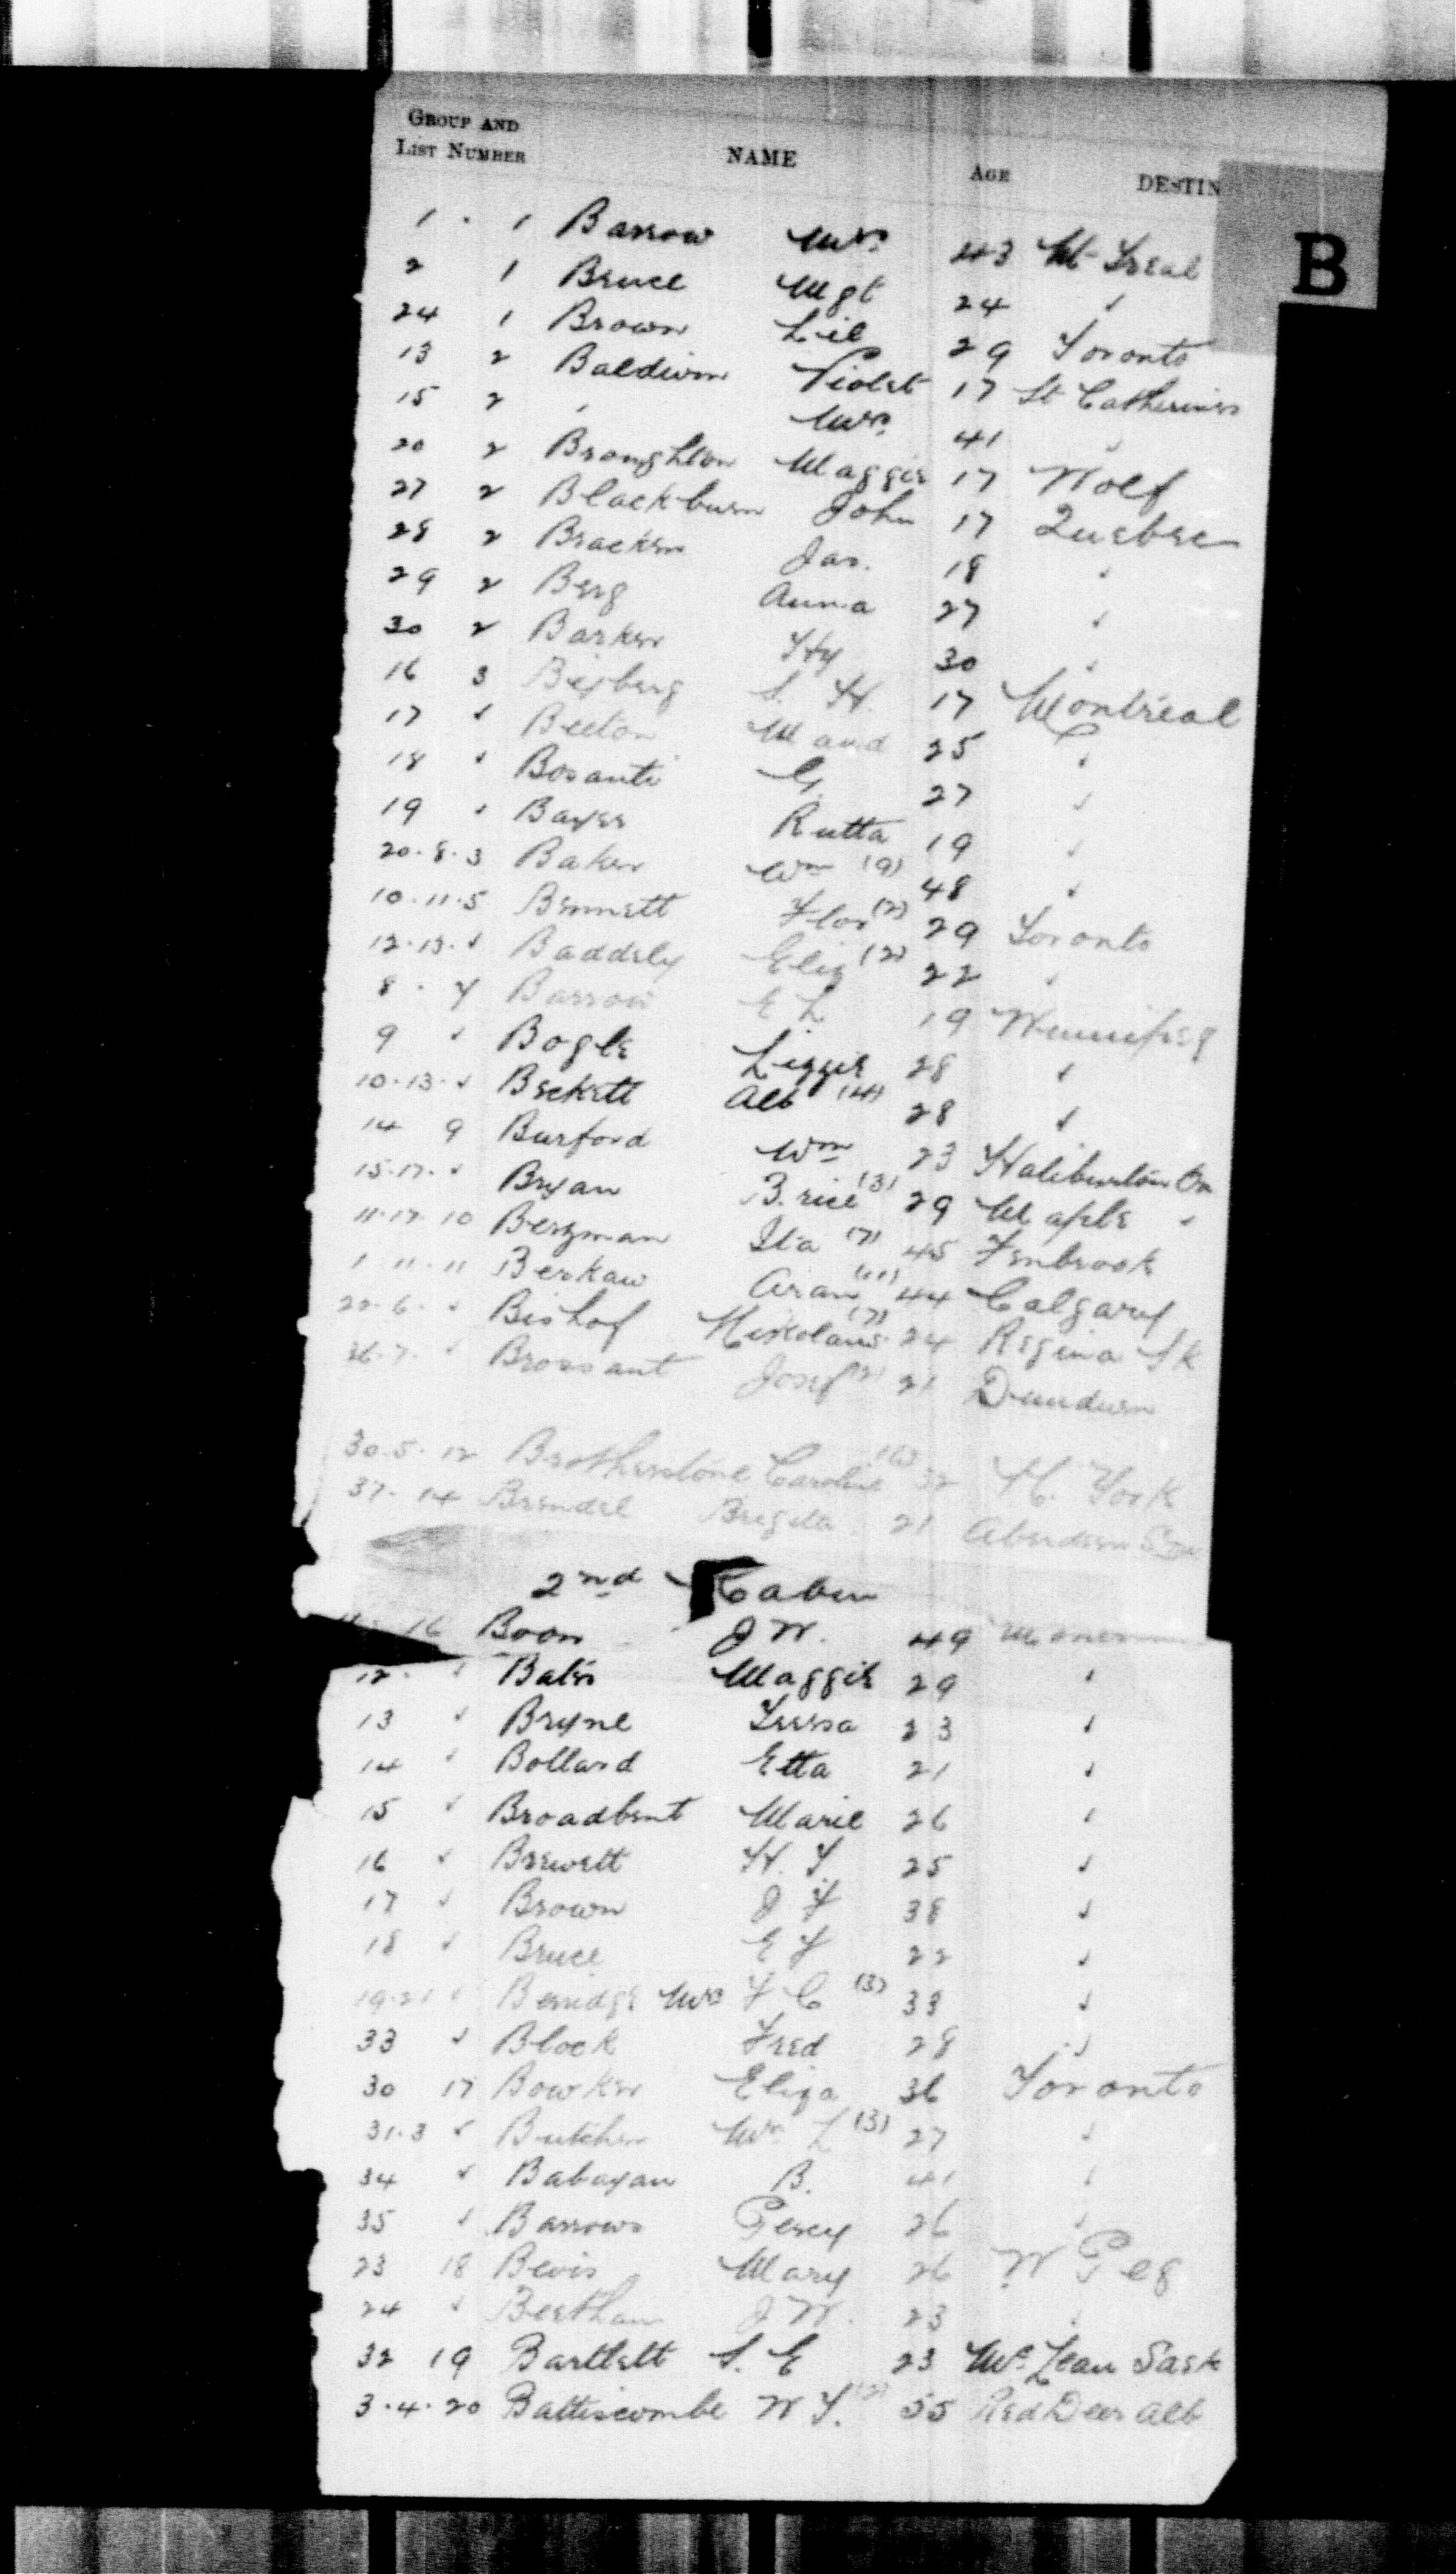 GROUP AND
LIST NUMBER NAME AGE DESTIN
B
1 . 1 Barrow Mrs. 43 Mt Treal
2 1 Bruce Mgt 24 "
24 1 Brown Lil 29 Toronto
13 2 Baldwin Violet 17 St Catherines
15 2 " Mrs. 41 "
20 2 Broughton Maggie 17 Wolf
27 2 Blackburn John 17 Quebec
28 2 Bracken Jas. 18 "
29 2 Berg Anna 27 "
30 2 Barker Hy 30 "
16 3 S. H. 17 Montreal
17 " Beeton Maud 25 "
18 " Bosanti G. 27 "
19 " Bayer Rutta 19 "
20.8.3 Baker Wm (9) 48 "
10.11.5 Bennett Flor (2) 29 Toronto
12.13. " Baddely Eliz (2) 22 "
8 . 7 Barrow E L 19 Winnipeg
9 " Bogle Lizzie 28 "
10.13. " Beckett Alb (4) 28 "
14 9 Burford Wm 23 Haliburton On
15.17. " Bryan B.rice (3) 29 Maple "
11.17.10 Bergman Ita (7) 45 Fenbrook
1 11.11 Berkaw (11) 44 Calgary
20.6. " Bishof Nikolaus (7) 24 Regina Sk
26.7. " Brossant Josef (2) 21 Dundurn
30.5.12 Brotherstone Caroline (6) 32 N. York
37.14 Brendel Brigita 21 Aberdeen
2nd Cabin
16 Boon J W. 49
12 " Bates Maggie 29 "
13 " Bryne Teresa 23 "
14 " Bollard Etta 21 "
15 " Broadbent Marie 26 "
16 " Brewett H. T. 25 "
17 " Brown J F 38 "
18 " Bruce E F 22 "
19.21 " Berridge Mrs F C (3) 33 "
33 " Block Fred 28 "
30 17 Bowker Eliza 36 Toronto
31.3 " Butcher Mrs L (3) 27 "
34 " Babayan B. 41 "
35 " Barrows Percy 26 "
23 18 Bevis Mary 26 W Peg
24 " J W. 23 "
32 19 Bartlett S. E 23 McLean Sask
3.4.20 Battiscombe W F. (2) 55 Red Deer Alb